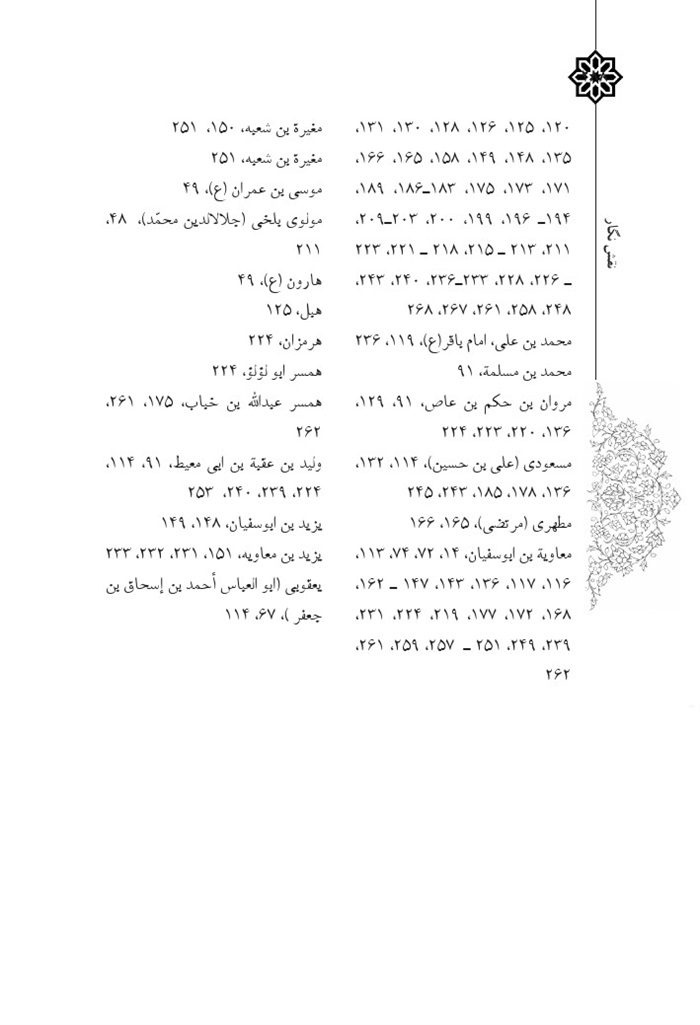 نقش نگار
۱۲۰، ۱۲۵، ۱۲۶، ۱۲۸، ۱۳۰، ۱۳۱،
۱۳۵، ۱۴۸، ۱۴۹، ۱۵۸، ۱۶۵، ۱۶۶،
۱۷۱، ۱۷۳، ۱۷۵، ۱۸۳ـ۱۸۶، ۱۸۹،
۱۹۴ـ ۱۹۶، ۱۹۹، ۲۰۰، ۲۰۳ـ۲۰۹،
۲۱۱، ۲۱۳ ـ ۲۱۵، ۲۱۸ ـ ۲۲۱، ۲۲۳
ـ ۲۲۶، ۲۲۸، ۲۳۳ـ۲۳۶، ۲۴۰، ۲۴۳،
۲۴۸، ۲۵۸، ۲۶۱، ۲۶۷، ۲۶۸
محمد بن علی، امام باقر(ع)، ۱۱۹، ۲۳۶
محمد بن مسلمة، ۹۱
مروان بن حکم بن عاص، ۹۱، ۱۲۹،
۱۳۶، ۲۲۰، ۲۲۳، ۲۲۴
مسعودی (علی بن حسین)، ۱۱۴، ۱۳۲،
۱۳۶، ۱۷۸، ۱۸۵، ۲۴۳، ۲۴۵
مطهری (مرتضی)، ۱۶۵، ۱۶۶
معاویة بن ابوسفیان، ۱۴، ۷۲، ۷۴، ۱۱۳،
۱۱۶، ۱۱۷، ۱۳۶، ۱۴۳، ۱۴۷ ـ ۱۶۲،
۱۶۸، ۱۷۲، ۱۷۷، ۲۱۹، ۲۲۴، ۲۳۱،
۲۳۹، ۲۴۹، ۲۵۱ ـ ۲۵۷، ۲۵۹، ۲۶۱،
۲۶۲
مغیرة بن شعبه، ۱۵۰، ۲۵۱
مغیرة بن شعبه، ۲۵۱
موسی بن عمران (ع)، ۴۹
مولوی بلخی (جلالالدین محمّد)، ۴۸،
۲۱۱
هارون (ع)، ۴۹
هبل، ۱۲۵
هرمزان، ۲۲۴
همسر ابو لؤلؤ، ۲۲۴
همسر عبدالله بن خباب، ۱۷۵، ۲۶۱،
۲۶۲
ولید بن عقبة بن ابی معیط، ۹۱، ۱۱۴،
۲۲۴، ۲۳۹، ۲۴۰، ۲۵۳
یزید بن ابوسفیان، ۱۴۸، ۱۴۹
یزید بن معاویه، ۱۵۱، ۲۳۱، ۲۳۲، ۲۳۳
یعقوبی (ابو العباس أحمد بن إسحاق بن
جعفر )، ۶۷، ۱۱۴